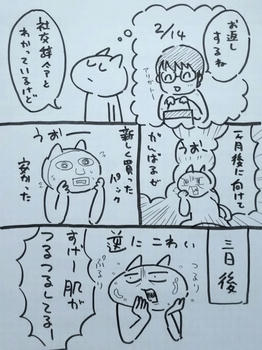 お返し
するね
2/14
アリガトー
社交辞令と
わかっているけど
一ヶ月後に向けて
うおー
がんばるぜ
うおー
新しく買った
パック
安かった
三日後
逆にこわい
つるり
ぷるり
すげー肌が
つるつるしてるー